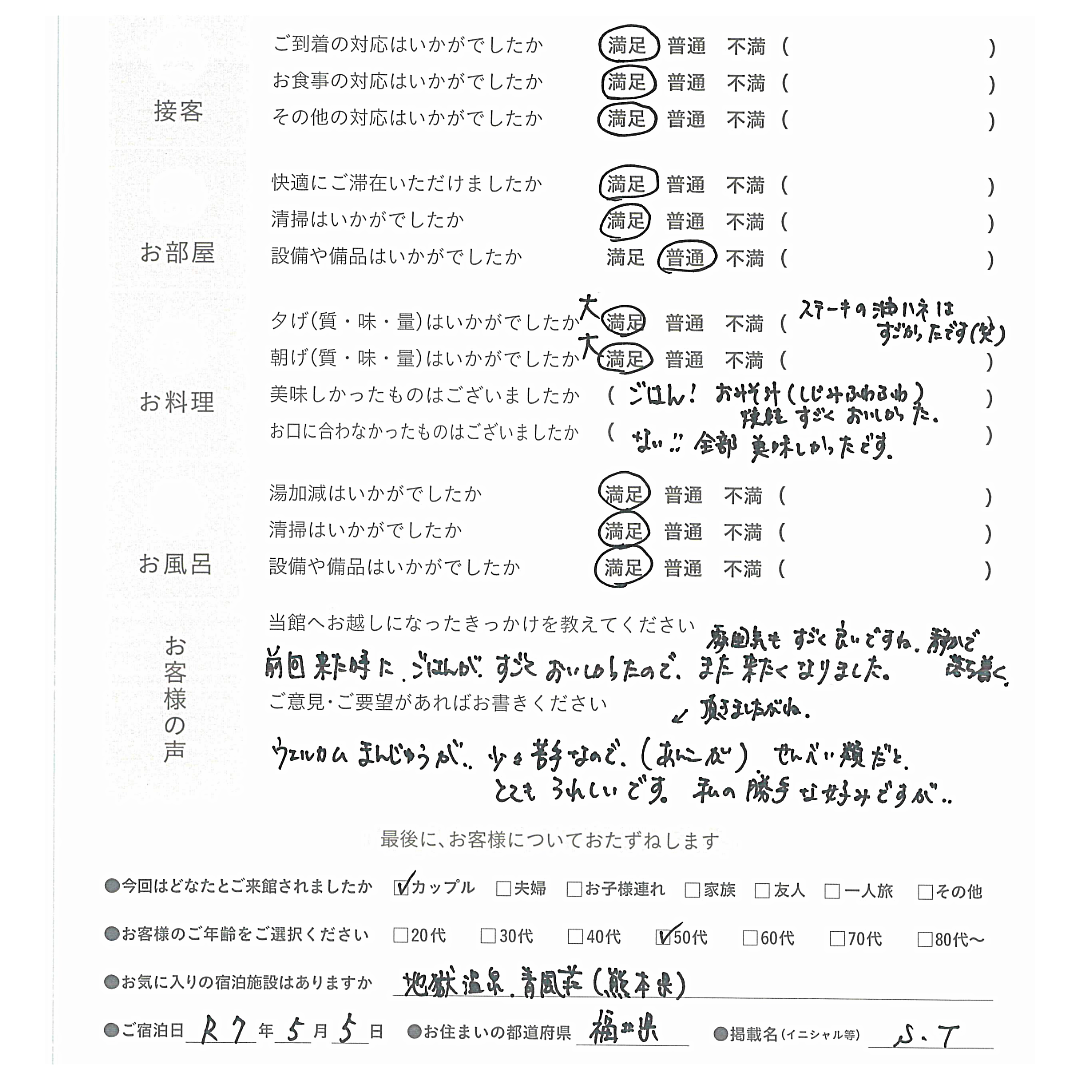 接客
ご到着の対応はいかがでしたか 満足 普通 不満 ( )
お食事の対応はいかがでしたか 満足 普通 不満 ( )
その他の対応はいかがでしたか 満足 普通 不満 ( )
お部屋
快適にご滞在いただけましたか 満足 普通 不満 ( )
清掃はいかがでしたか 満足 普通 不満 ( )
設備や備品はいかがでしたか 満足 普通 不満 ( )
お料理
夕げ(質・味・量)はいかがでしたか 大満足 普通 不満 ( ステーキの油ハネは
すごかったです(笑)
朝げ(質・味・量)はいかがでしたか 大満足 普通 不満 ( )
美味しかったものはございましたか ( ごはん! おみそ汁(しじみふわふわ) )
焼鮭 すごく おいしかった.
お口に合わなかったものはございましたか ( ない!! 全部 美味しかったです。 )
お風呂
湯加減はいかがでしたか 満足 普通 不満 ( )
清掃はいかがでしたか 満足 普通 不満 ( )
設備や備品はいかがでしたか 満足 普通 不満 ( )
お客様の声
当館へお越しになったきっかけを教えてください
雰囲気も すごく 良いですね. 静かで
落ち着く.
前回 来た時に、ごはんが、すごく おいしかったので、また 来たく なりました。
ご意見・ご要望があればお書きください
↙ 頂きましたがね.
ウェルカム まんじゅうが.. 少々 苦手なので、(あんこが) せんべい類だと、
とても うれしいです。 私の 勝手な好みですが..
最後に、お客様についておたずねします
●今回はどなたとご来館されましたか ☑カップル □夫婦 □お子様連れ □家族 □友人 □一人旅 □その他
●お客様のご年齢をご選択ください □20代 □30代 □40代 ☑50代 □60代 □70代 □80代〜
●お気に入りの宿泊施設はありますか 地獄温泉.青風荘(熊本県)
●ご宿泊日 R7年5月5日 ●お住まいの都道府県 福井県 ●掲載名(イニシャル等) S.T